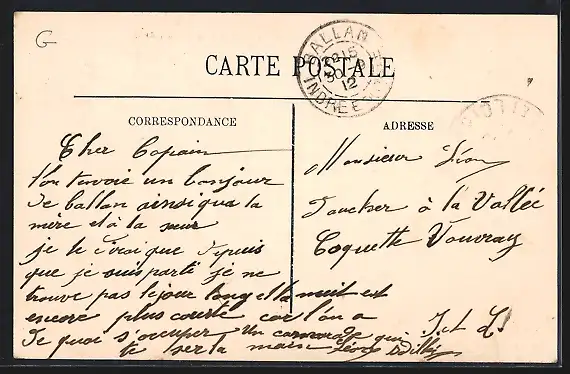 G
CARTE POSTALE
BALLAN
INDRE ET
12
CORRESPONDANCE
ADRESSE
Cher Copain
t'on tervoie un bonjour
de ballan ainsi qua ta
mère et à ta sœur
je te dirai que depuis
que je suis parti je ne
trouve pas le jour long et la nuit est
encore plus courte car l'on a
de quoi s'occuper Un camarade qui
te serla main Léon
Monsieur Léon
à la Vallée
Coquette Vouvray
I. et L.